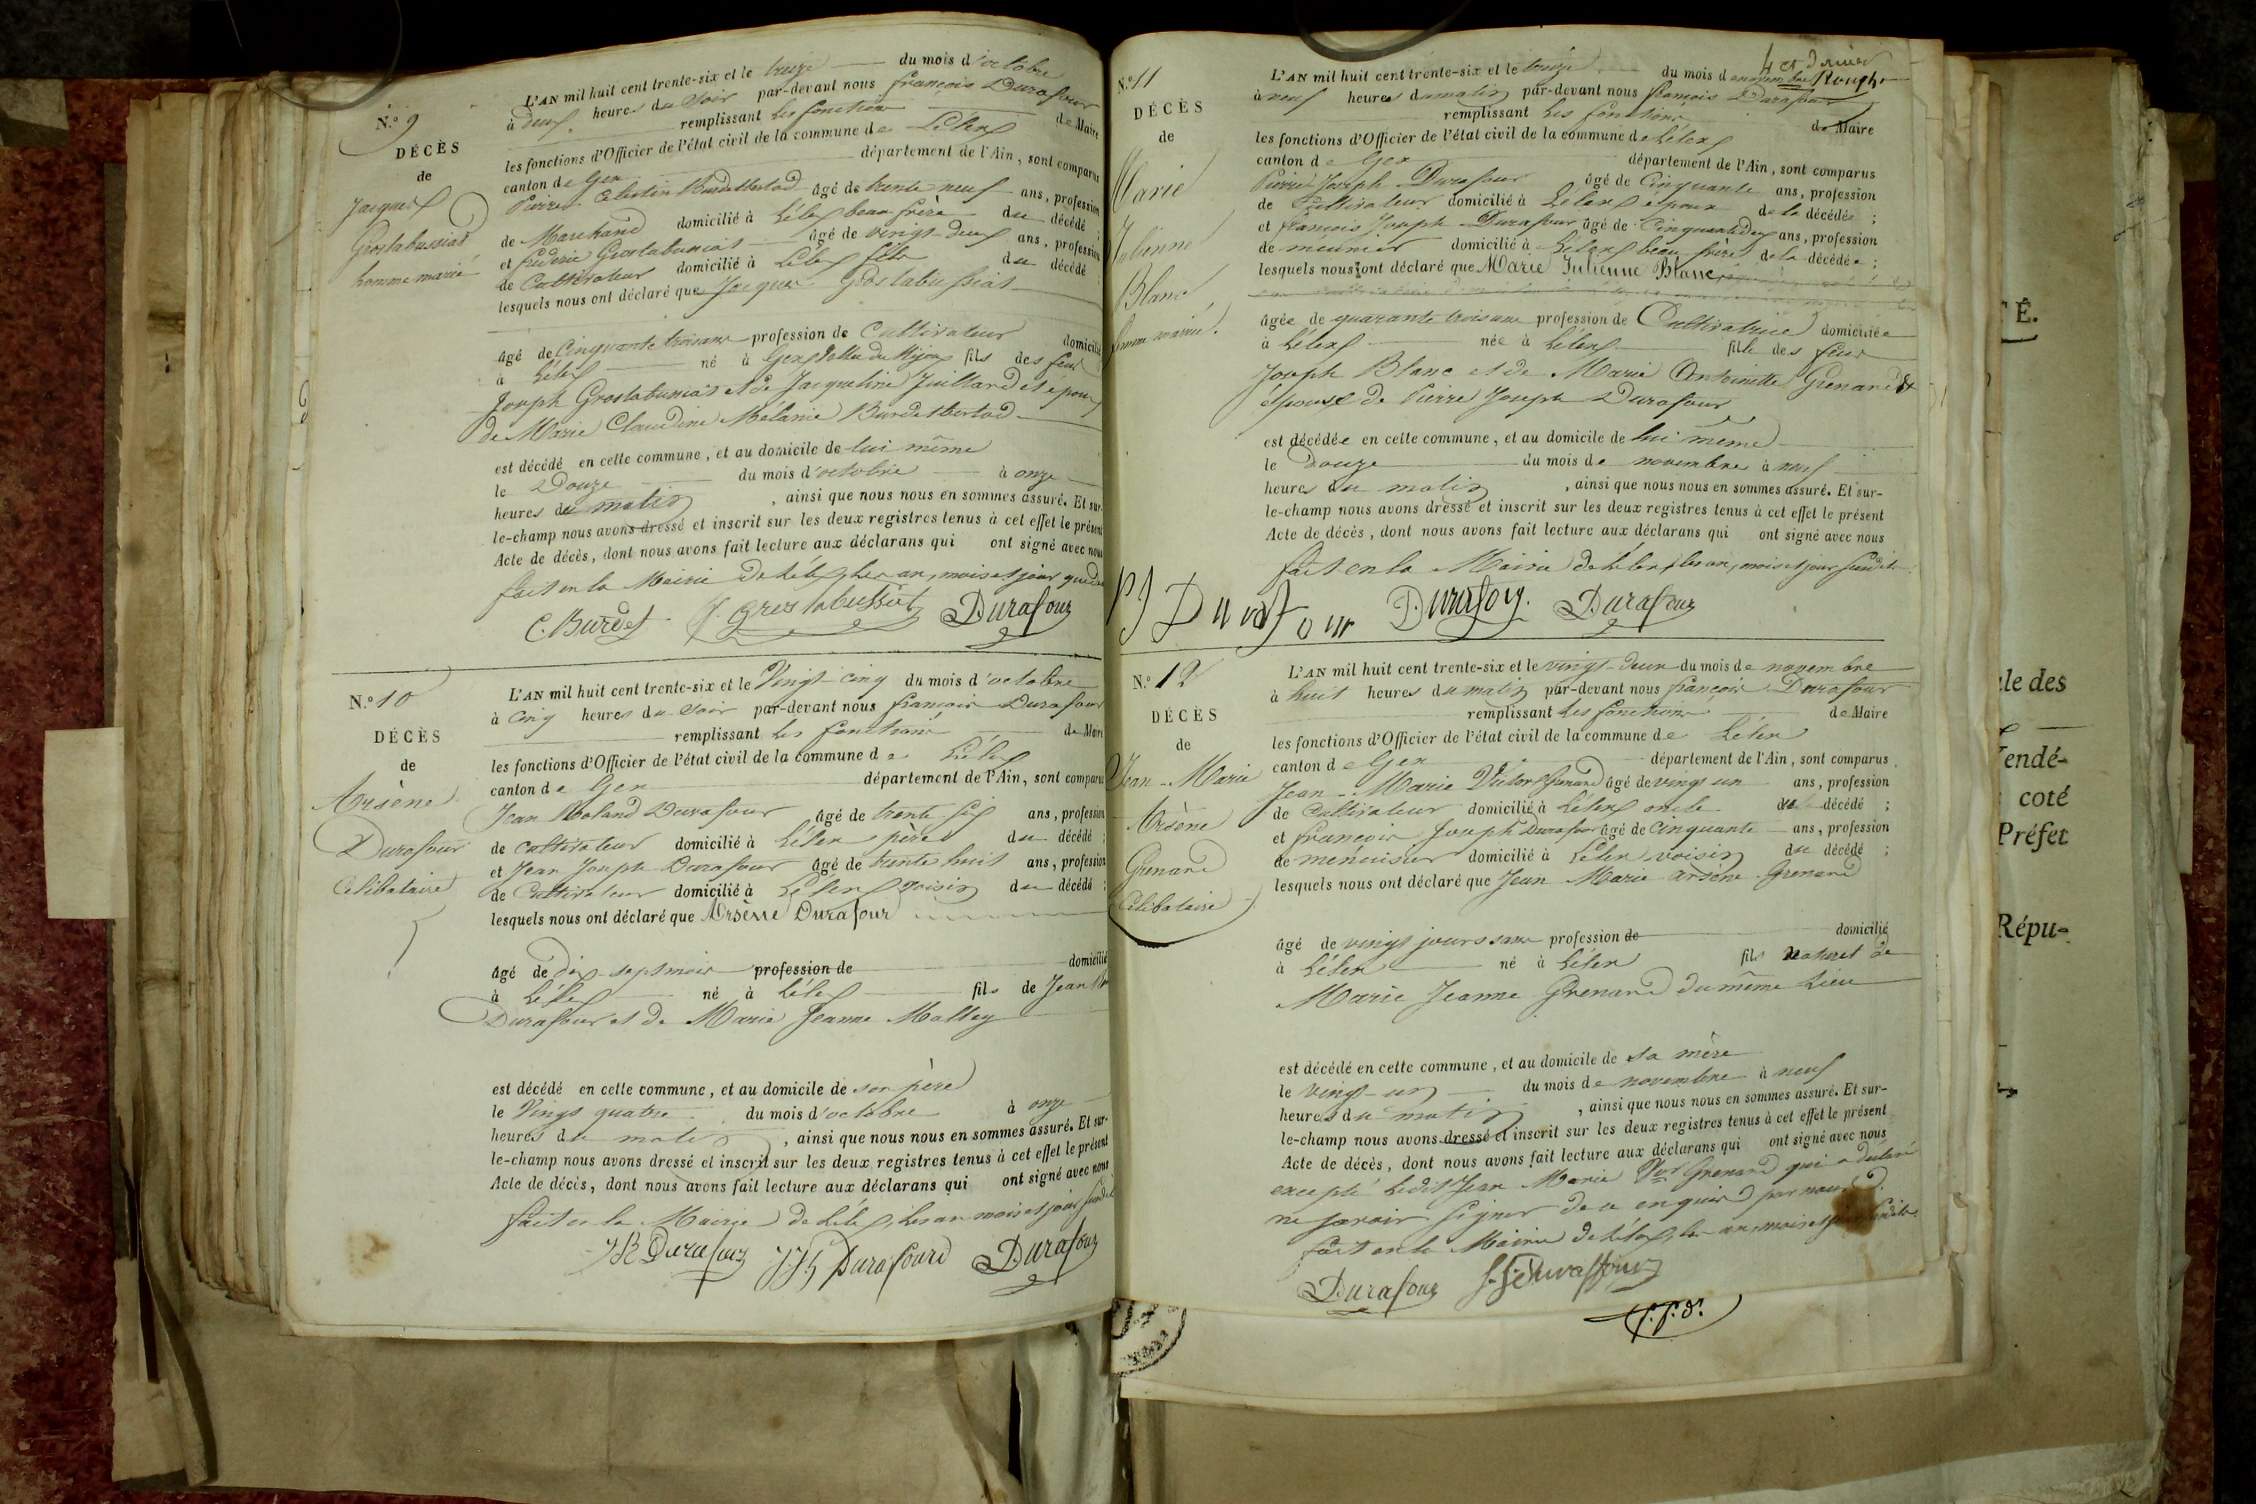 N.o 9
DÉCÈS
de
Jacques
Grostabussiat
homme marié
L'AN mil huit cent trente-six et le treize du mois d'octobre
à deux heures du soir par-devant nous françois Durafour
remplissant les fonctions de Maire
les fonctions d'Officier de l'état civil de la commune de Lélex
canton de Gex département de l'Ain, sont comparus
Pierre Célestin Burdet âgé de trente neuf ans, profession
de Marchand domicilié à Lélex beau frère du décédé ;
et fréderic Grostabussiat âgé de vingt-deux ans, profession
de Cultivateur domicilié à Lélex fils du décédé
lesquels nous ont déclaré que Jacques Grostabussiat
âgé de Cinquante trois ans profession de Cultivateur domicilié
à Lélex né à Gex fils des feus
Joseph Grostabussiat et de Jacqueline Juilland et époux
de Marie Claudine Melanie Burdet
est décédé en cette commune, et au domicile de lui même
le Douze du mois d'octobre à onze
heures du matin, ainsi que nous nous en sommes assuré. Et sur-
le-champ nous avons dressé et inscrit sur les deux registres tenus à cet effet le présent
Acte de décès, dont nous avons fait lecture aux déclarans qui ont signé avec nous
fait en la Mairie de Lélex, les an, mois et jour que
C. Burdet f. grostabussiat Durafour
N.o 10
DÉCÈS
de
Arsène
Durafour
Célibataire
L'AN mil huit cent trente-six et le Vingt-cinq du mois d'octobre
à cinq heures du soir par-devant nous françois Durafour
remplissant les fonctions de Maire
les fonctions d'Officier de l'état civil de la commune de Lélex
canton de Gex département de l'Ain, sont comparus
Jean Roland Durafour âgé de trente six ans, profession
de cultivateur domicilié à Lélex père du décédé ;
et Jean Joseph Durafour âgé de trente huit ans, profession
de Cultivateur domicilié à Lélex voisin du décédé ;
lesquels nous ont déclaré que Arsène Durafour
âgé de dix sept mois profession de domicilié
à Lélex né à Lélex fils de Jean
Durafour et de Marie Jeanne Mathey
est décédé en cette commune, et au domicile de son père
le Vingt quatre du mois d'octobre à onze
heures du matin, ainsi que nous nous en sommes assuré. Et sur-
le-champ nous avons dressé et inscrit sur les deux registres tenus à cet effet le présent
Acte de décès, dont nous avons fait lecture aux déclarans qui ont signé avec nous
fait en la Mairie de Lélex, les an mois et jour susdits
JR Durafour JJh Durafourd Durafour
4 et dernier
N.o 11
DÉCÈS
de
Marie
Julienne
Blanc
femme mariée.
L'AN mil huit cent trente-six et le treize du mois de novembre
à neuf heures du matin par-devant nous françois Durafour
remplissant les fonctions de Maire
les fonctions d'Officier de l'état civil de la commune de Lélex
canton de Gex département de l'Ain, sont comparus
Pierre Joseph Durafour âgé de Cinquante ans, profession
de Cultivateur domicilié à Lélex époux de la décédée ;
et françois Joseph Durafour âgé de Cinquante deux ans, profession
de meunier domicilié à Lélex beau frère de la décédée ;
lesquels nous ont déclaré que Marie Julienne Blanc
âgée de quarante trois ans profession de Cultivatrice domiciliée
à Lélex née à Lélex fille des feus
Joseph Blanc et de Marie Antoinette Grenard et
épouse de Pierre Joseph Durafour
est décédée en cette commune, et au domicile de lui même
le Douze du mois de novembre à neuf
heures du matin, ainsi que nous nous en sommes assuré. Et sur-
le-champ nous avons dressé et inscrit sur les deux registres tenus à cet effet le présent
Acte de décès, dont nous avons fait lecture aux déclarans qui ont signé avec nous
fait en la Mairie de Lélex, les an, mois et jour susdits.
PJ Durafour Durafour Durafour
N.o 12
DÉCÈS
de
Jean-Marie
Arsène
Grenard
Célibataire
L'AN mil huit cent trente-six et le vingt-deux du mois de novembre
à huit heures du matin par-devant nous françois Durafour
remplissant les fonctions de Maire
les fonctions d'Officier de l'état civil de la commune de Lélex
canton de Gex département de l'Ain, sont comparus
Jean-Marie Victor Grenard âgé de vingt un ans, profession
de Cultivateur domicilié à Lélex oncle du décédé ;
et françois Joseph Durafour âgé de Cinquante ans, profession
de menuisier domicilié à Lélex voisin du décédé ;
lesquels nous ont déclaré que Jean Marie arsène Grenard
âgé de vingt jours sans profession de domicilié
à Lélex né à Lélex fils naturel de
Marie Jeanne Grenard du même Lieu
est décédé en cette commune, et au domicile de sa mère
le vingt-un du mois de novembre à neuf
heures du matin, ainsi que nous nous en sommes assuré. Et sur-
le-champ nous avons dressé et inscrit sur les deux registres tenus à cet effet le présent
Acte de décès, dont nous avons fait lecture aux déclarans qui ont signé avec nous
excepté ledit Jean Marie Vor Grenard qui a déclaré
ne savoir signer de ce enquis par nous
fait en la Mairie de Lélex, les an, mois et jour susdits.
Durafour f. J. Duraffour
f. f. d.
TÉ.
ale des
Vendé-
coté
Préfet
Répu-